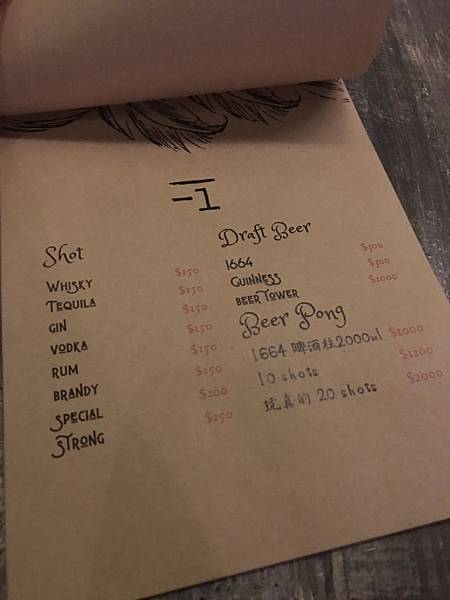 -1
Shot
WHISKY $150
TEQUILA $150
GIN $150
VODKA $150
RUM $150
BRANDY $150
SPECIAL $200
STRONG $250
Draft Beer
1664 $300
GUINNESS $300
BEER TOWER $1000
Beer Pong
1664 啤酒柱2000ml $1000
10 shots $1200
玩真的 20 shots $2000